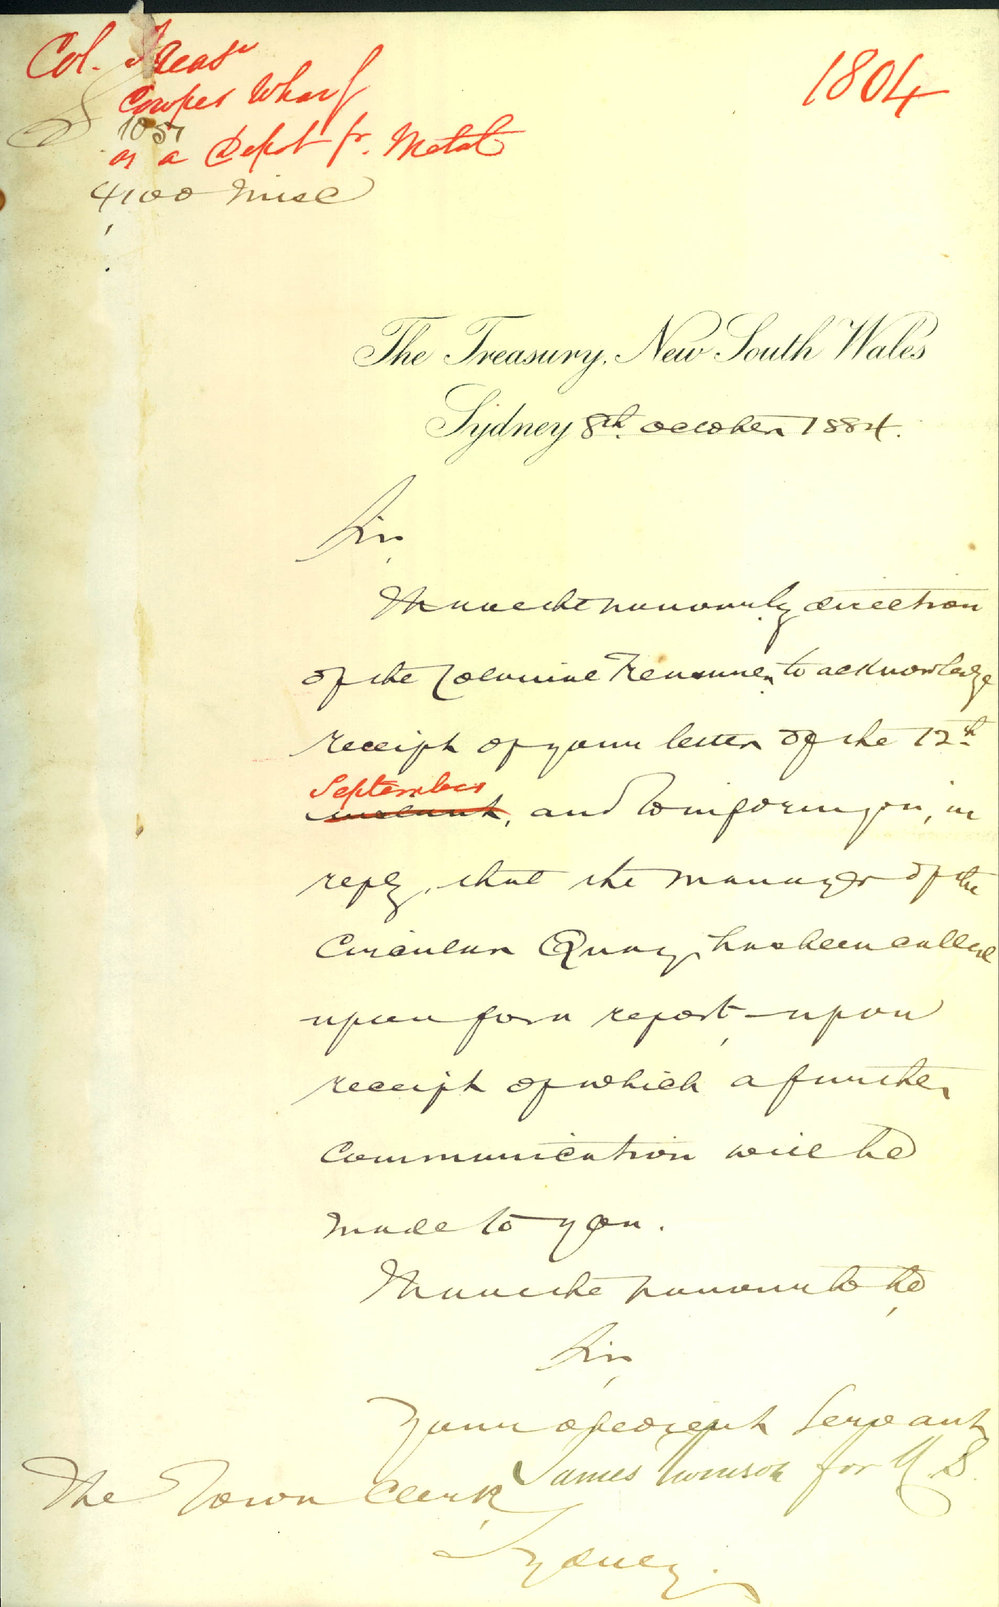 Col. Treasr
1804
Cowper Wharf
1057
as a Depôt fr. Metal
4100 Misc
The Treasury, New South Wales
Sydney 8th. October 1884.
Sir,
I have the honour, by direction
of the Colonial Treasurer, to acknowledge
receipt of your letter of the 12th
September
instant, and to inform you, in
reply, that the Manager of the
Circular Quay, has been called
upon for a report, upon
receipt of which a further
communication will be
made to you.
I have the honour to be,
Sir,
Your obedient Servant
James Thomson for U.S.
The Town Clerk,
Sydney.